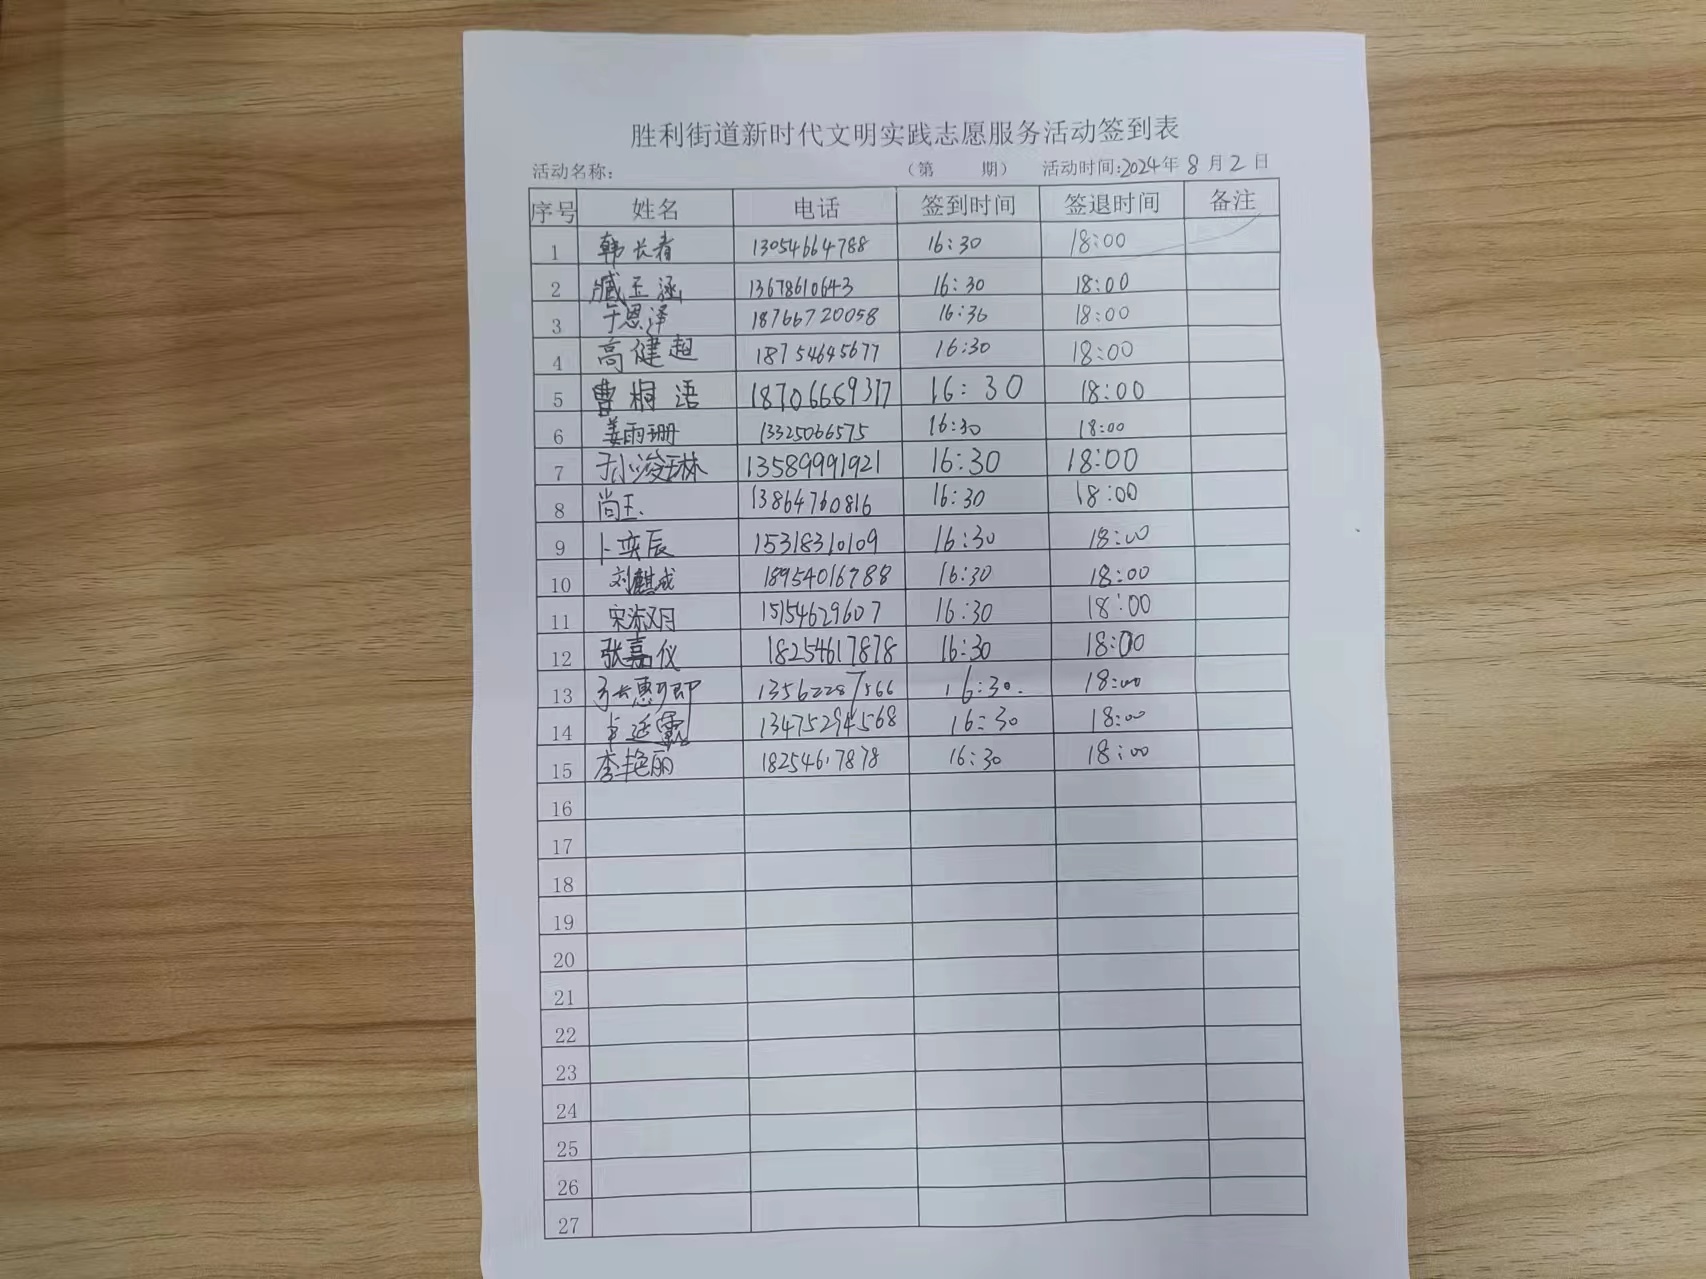 胜利街道新时代文明实践志愿服务活动签到表
活动名称: （第 期） 活动时间:2024年 8 月 2 日
序号 姓名 电话 签到时间 签退时间 备注
1 韩长者 13054664788 16:30 18:00
2 臧玉涵 13678610643 16:30 18:00
3 于恩泽 18766720058 16:30 18:00
4 高健超 18754645677 16:30 18:00
5 曹桐语 18706669317 16:30 18:00
6 姜雨珊 13325066575 16:30 18:00
7 于小浚琳 13589991921 16:30 18:00
8 尚玉 13864760816 16:30 18:00
9 卜奕辰 15318310109 16:30 18:00
10 刘麒成 18954016788 16:30 18:00
11 宋淑月 15154629607 16:30 18:00
12 张嘉仪 18254617878 16:30 18:00
13 13562287566 16:30. 18:00
14 13475294568 16:30 18:00
15 李艳丽 18254617878 16:30 18:00
16
17
18
19
20
21
22
23
24
25
26
27